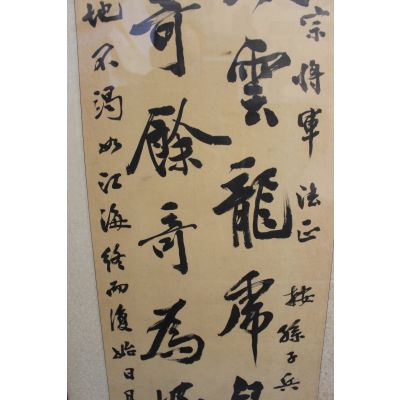 宗將軍 法正
按孫子兵
雲龍虎
奇餘奇為
地不渴如江海終而復始日月